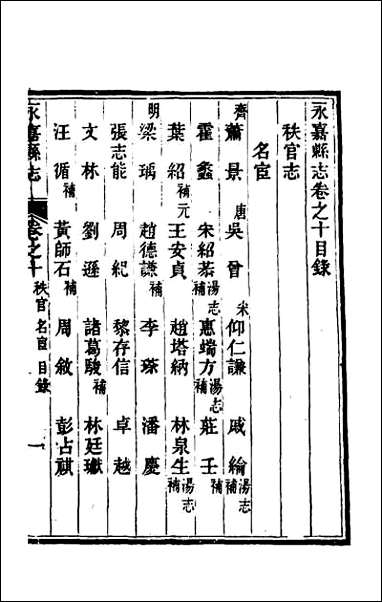 永嘉縣志卷之十目錄
秩官志
名宦
齊 蕭景 唐 吳曾 宋 仰仁謙 戚綸湯志補
霍蠡 朱紹湯志補 惠端方湯志補 莊壬
葉紹補 元 王安貞 趙塔納 林泉生湯志補
明 梁瑀 趙德謙補 李琛 潘慶
張志能 周紀 黎存信 卓越
文林 劉遜 諸葛駿補 林廷瓛
汪循補 黃師石補 周敘 彭占祺
永嘉縣志 卷之十 秩官 名宦 目錄 一